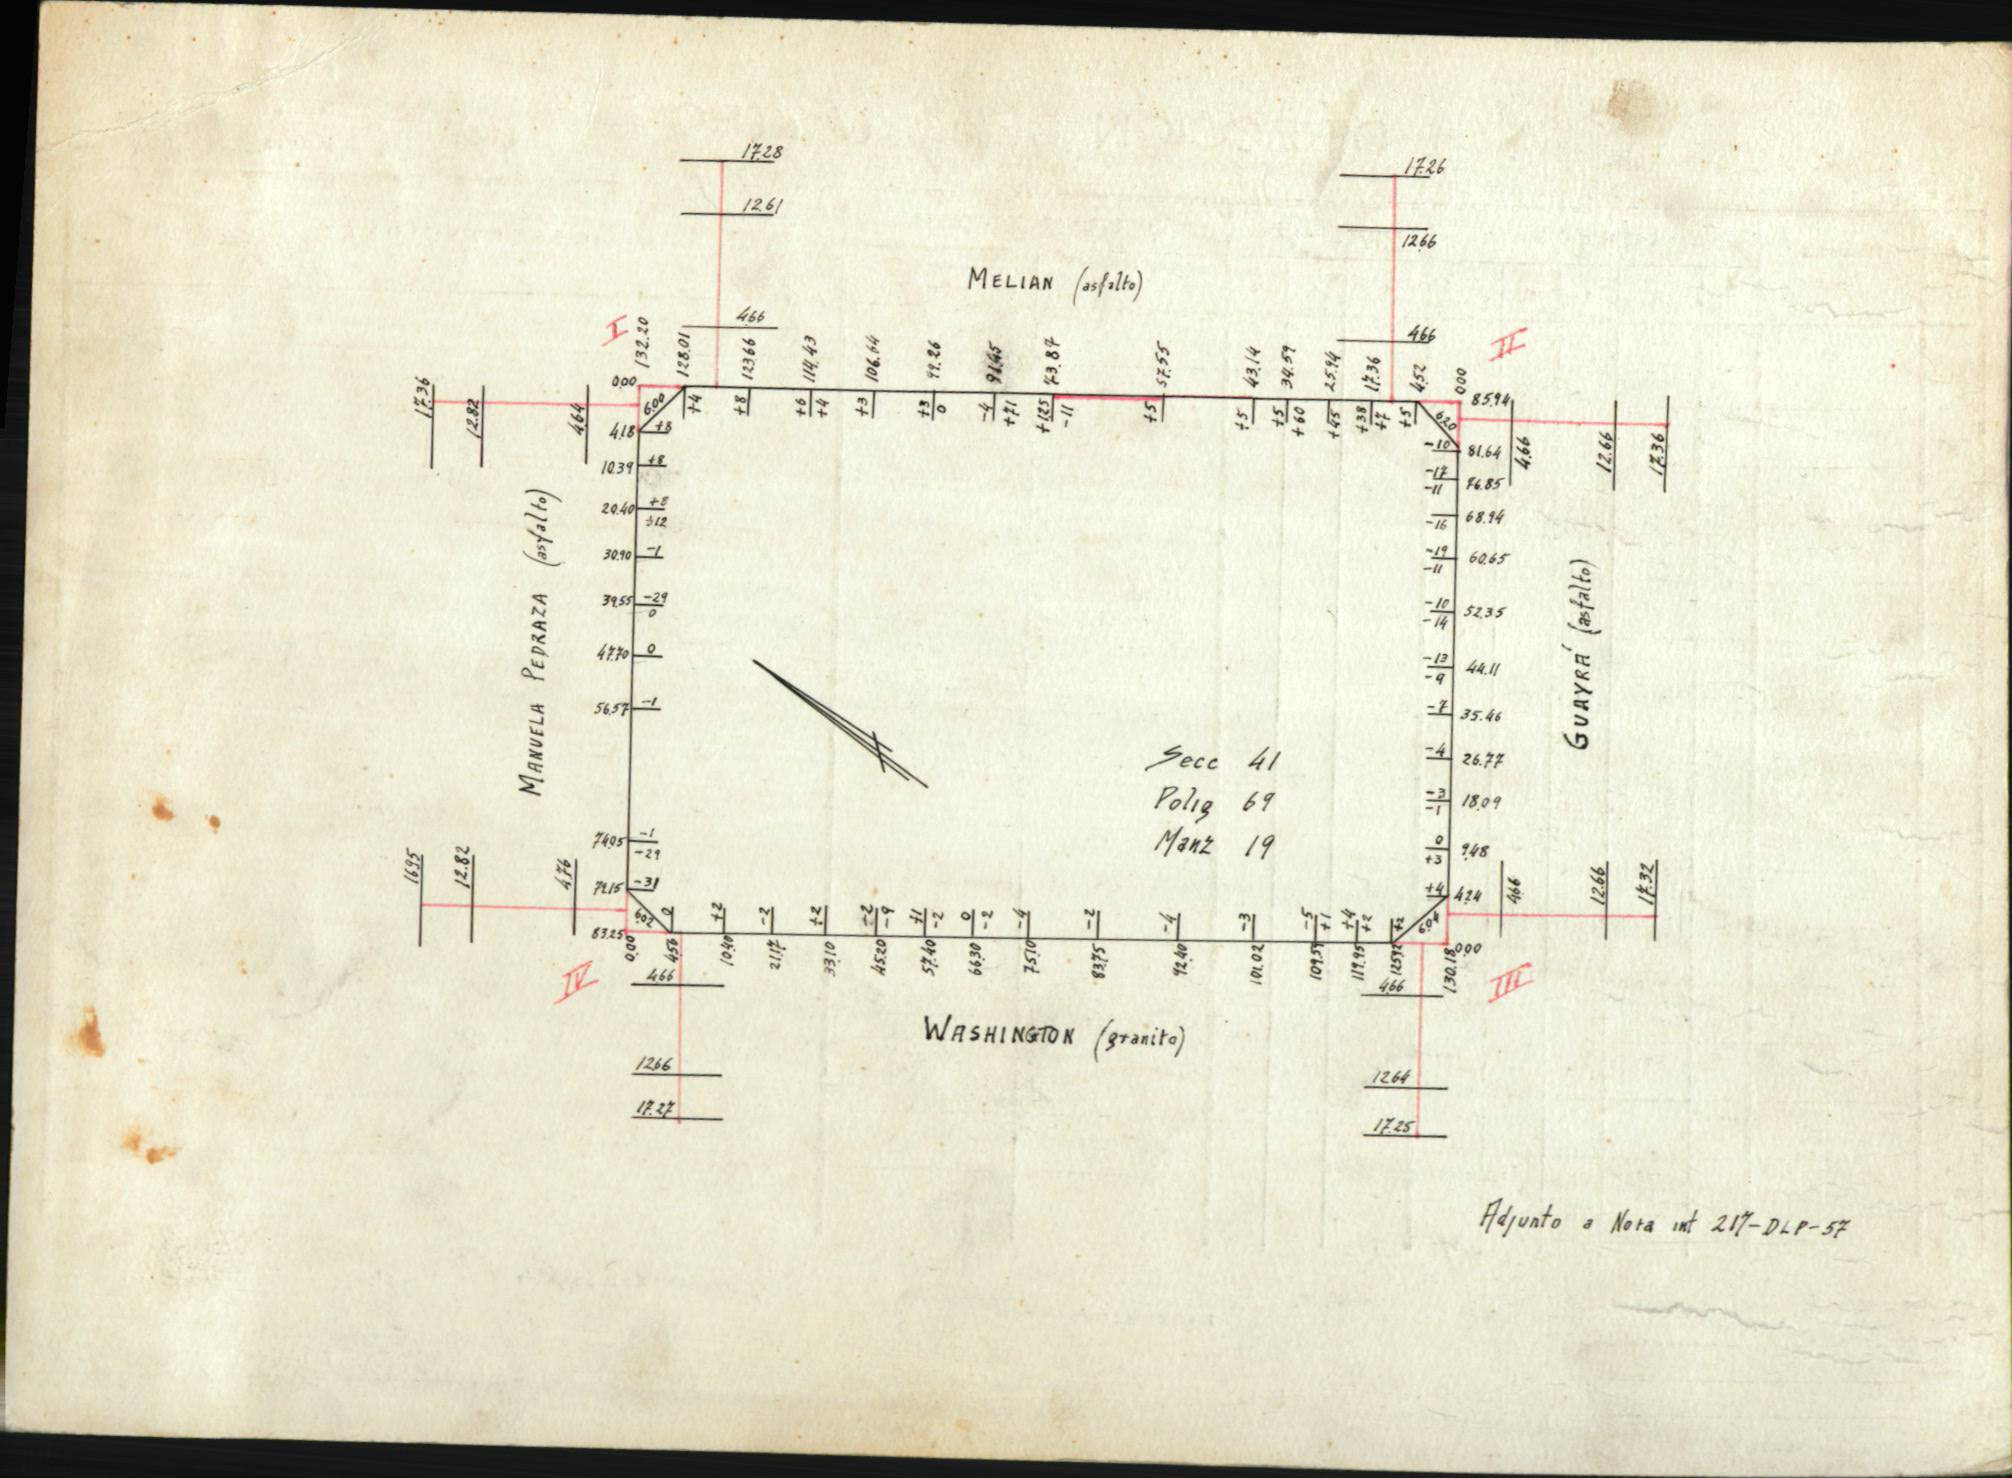 17.28
12.61
4.66
17.26
12.66
4.66
MELIAN (asfalto)
I
II
132.20
128.01
123.66
114.43
106.64
99.26
91.45
73.87
57.55
43.14
34.59
25.94
17.36
4.52
0.00
+4
+8
+6 +4
+3
+3 0
-4 +71
+125 -11
+5
+5
+5 +60
+45
+38 +7
+5
17.36
12.82
4.64
0.00
6.00
4.18 +8
10.39 +8
20.40 +8 +12
30.90 -1
39.55 -29 0
47.70 0
56.57 -1
74.05 -1 -29
-31
83.25
6.02
MANUELA PEDRAZA (asfalto)
16.95
12.82
4.76
85.94
6.20
-10 81.64
-17 -11 76.85
-16 68.94
-19 -11 60.65
-10 -14 52.35
-13 -9 44.11
-7 35.46
-4 26.77
-3 -1 18.09
0 +3 9.48
+4 4.24
6.04
0.00
4.66
12.66
17.36
GUAYRÁ (asfalto)
4.66
12.66
17.32
Secc 41
Polig 69
Manz 19
0
+2
-2
+2
-2 -9
+1 -2
0 -2
-4
-2
-4
-3
-5 +1
+4 +2
+2
0.00
4.56
10.40
21.17
33.10
45.20
57.40
66.30
75.10
83.75
92.40
101.02
109.57
119.95
125.92
130.18
IV
III
4.66
12.66
17.27
4.66
12.64
17.25
WASHINGTON (granito)
Adjunto a Nota int 217-DLP-57